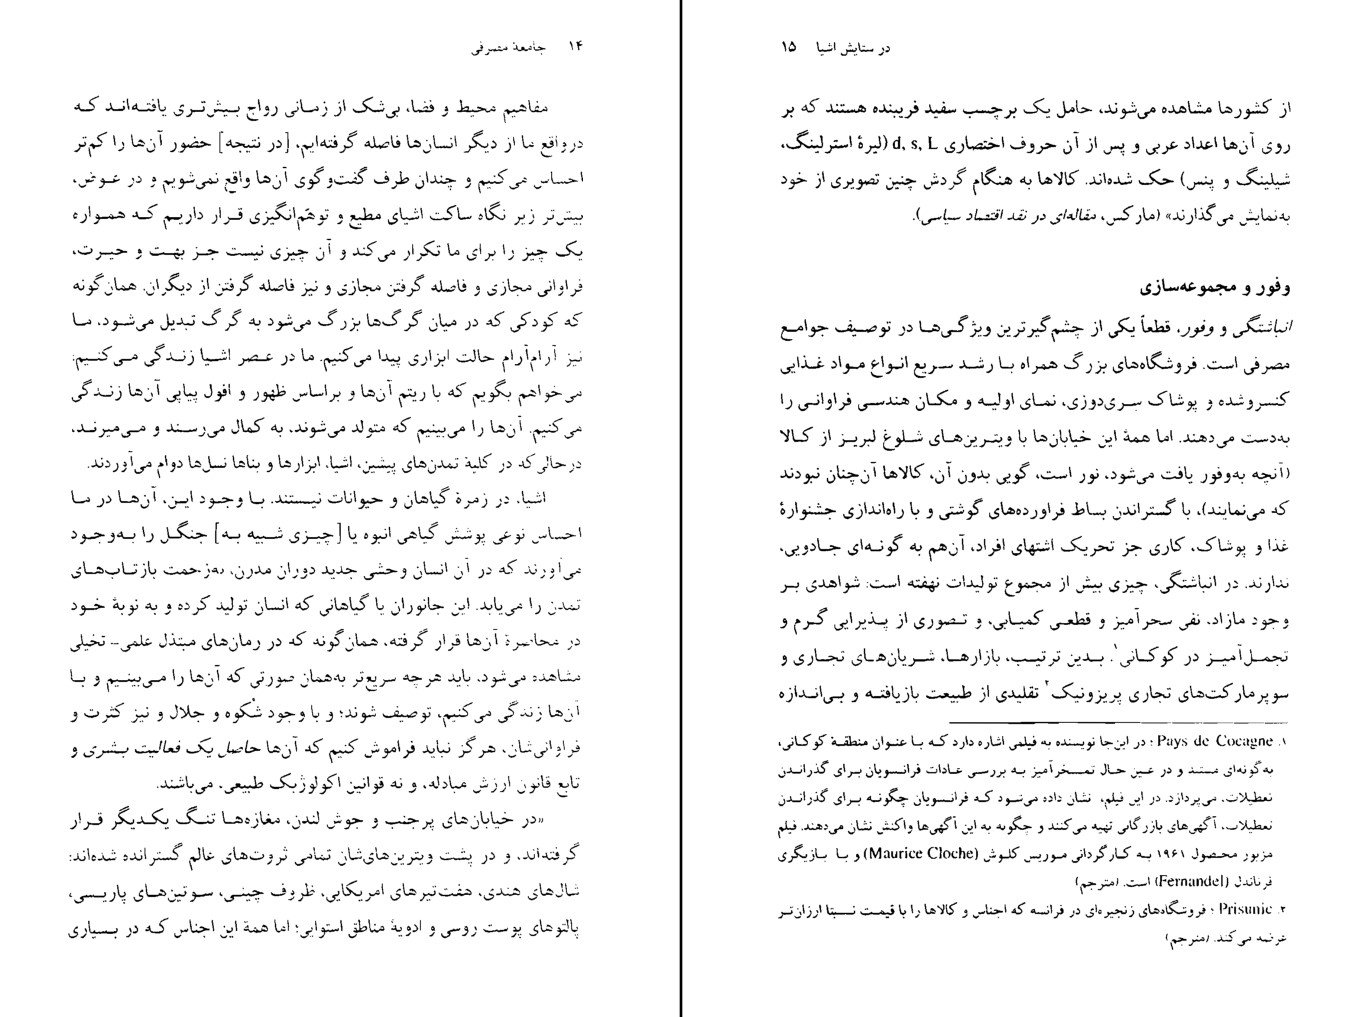 ۱۴ جامعهٔ مصرفی
مفاهیم محیط و فضا، بی‌شک از زمانی رواج بیش‌تری یافته‌اند که
درواقع ما از دیگر انسان‌ها فاصله گرفته‌ایم، [در نتیجه] حضور آن‌ها را کم‌تر
احساس می‌کنیم و چندان طرف گفت‌وگوی آن‌ها واقع نمی‌شویم و در عوض،
بیش‌تر زیر نگاه ساکت اشیای مطیع و توهّم‌انگیزی قرار داریم که همواره
یک چیز را برای ما تکرار می‌کند و آن چیزی نیست جز بهت و حیرت،
فراوانی مجازی و فاصله گرفتن مجازی و نیز فاصله گرفتن از دیگران. همان‌گونه
که کودکی که در میان گرگ‌ها بزرگ می‌شود به گرگ تبدیل می‌شود، ما
نیز آرام‌آرام حالت ابزاری پیدا می‌کنیم. ما در عصر اشیا زندگی می‌کنیم:
می‌خواهم بگویم که با ریتم آن‌ها و براساس ظهور و افول پیاپی آن‌ها زندگی
می‌کنیم. آن‌ها را می‌بینیم که متولد می‌شوند، به کمال می‌رسند و می‌میرند،
درحالی‌که در کلیهٔ تمدن‌های پیشین، اشیا، ابزارها و بناها نسل‌ها دوام می‌آوردند.
اشیا، در زمرهٔ گیاهان و حیوانات نیستند. با وجود این، آن‌ها در ما
احساس نوعی پوشش گیاهی انبوه یا [چیزی شبیه به] جنگل را به‌وجود
می‌آورند که در آن انسان وحشی جدید دوران مدرن، به‌زحمت بازتاب‌های
تمدن را می‌یابد. این جانوران یا گیاهانی که انسان تولید کرده و به نوبهٔ خود
در محاصرهٔ آن‌ها قرار گرفته، همان‌گونه که در رمان‌های مبتذل علمی– تخیلی
مشاهده می‌شود، باید هرچه سریع‌تر به‌همان صورتی که آن‌ها را می‌بینیم و با
آن‌ها زندگی می‌کنیم، توصیف شوند؛ و با وجود شکوه و جلال و نیز کثرت و
فراوانی‌شان، هرگز نباید فراموش کنیم که آن‌ها حاصل یک فعالیت بشری و
تابع قانون ارزش مبادله، و نه قوانین اکولوژیک طبیعی، می‌باشند.
«در خیابان‌های پرجنب و جوش لندن، مغازه‌ها تنگ یکدیگر قرار
گرفته‌اند، و در پشت ویترین‌های‌شان تمامی ثروت‌های عالم گسترانده شده‌اند:
شال‌های هندی، هفت‌تیرهای امریکایی، ظروف چینی، سوتین‌های پاریسی،
پالتوهای پوست روسی و ادویهٔ مناطق استوایی؛ اما همهٔ این اجناس که در بسیاری
در ستایش اشیا ۱۵
از کشورها مشاهده می‌شوند، حامل یک برچسب سفید فریبنده هستند که بر
روی آن‌ها اعداد عربی و پس از آن حروف اختصاری d, s, L (لیرهٔ استرلینگ،
شیلینگ و پنس) حک شده‌اند. کالاها به هنگام گردش چنین تصویری از خود
به‌نمایش می‌گذارند» (مارکس، مقاله‌ای در نقد اقتصاد سیاسی).
وفور و مجموعه‌سازی
انباشتگی و وفور، قطعاً یکی از چشم‌گیرترین ویژگی‌ها در توصیف جوامع
مصرفی است. فروشگاه‌های بزرگ همراه با رشد سریع انواع مواد غذایی
کنسروشده و پوشاک سری‌دوزی، نمای اولیه و مکان هندسی فراوانی را
به‌دست می‌دهند. اما همهٔ این خیابان‌ها با ویترین‌های شلوغ لبریز از کالا
(آنچه به‌وفور یافت می‌شود، نور است، گویی بدون آن، کالاها آن‌چنان نبودند
که می‌نمایند)، با گستراندن بساط فراورده‌های گوشتی و با راه‌اندازی جشنوارهٔ
غذا و پوشاک، کاری جز تحریک اشتهای افراد، آن‌هم به گونه‌ای جادویی،
ندارند. در انباشتگی، چیزی بیش از مجموع تولیدات نهفته است: شواهدی بر
وجود مازاد، نفی سحرآمیز و قطعی کمیابی، و تصوری از پذیرایی گرم و
تجمل‌آمیز در کوکانی۱. بدین ترتیب، بازارها، شریان‌های تجاری و
سوپرمارکت‌های تجاری پریزونیک۲ تقلیدی از طبیعت بازیافته و بی‌اندازه
۱. Pays de Cocagne؛ در این‌جا نویسنده به فیلمی اشاره دارد که با عنوان منطقهٔ کوکانی،
به‌گونه‌ای مستند و در عین حال تمسخرآمیز به بررسی عادات فرانسویان برای گذراندن
تعطیلات، می‌پردازد. در این فیلم، نشان داده می‌شود که فرانسویان چگونه برای گذراندن
تعطیلات، آگهی‌های بازرگانی تهیه می‌کنند و چگونه به این آگهی‌ها واکنش نشان می‌دهند. فیلم
مزبور محصول ۱۹۶۱ به کارگردانی موریس کلوش (Maurice Cloche) و با بازیگری
فرناندل (Fernandel) است. (مترجم)
۲. Prisunic؛ فروشگاه‌های زنجیره‌ای در فرانسه که اجناس و کالاها را با قیمت نسبتا ارزان‌تر
عرضه می‌کند. (مترجم)